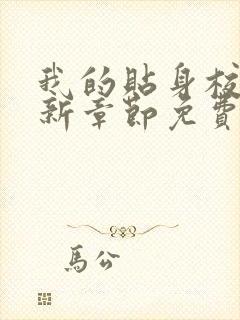 我的貼身校
新章節免費
馬公